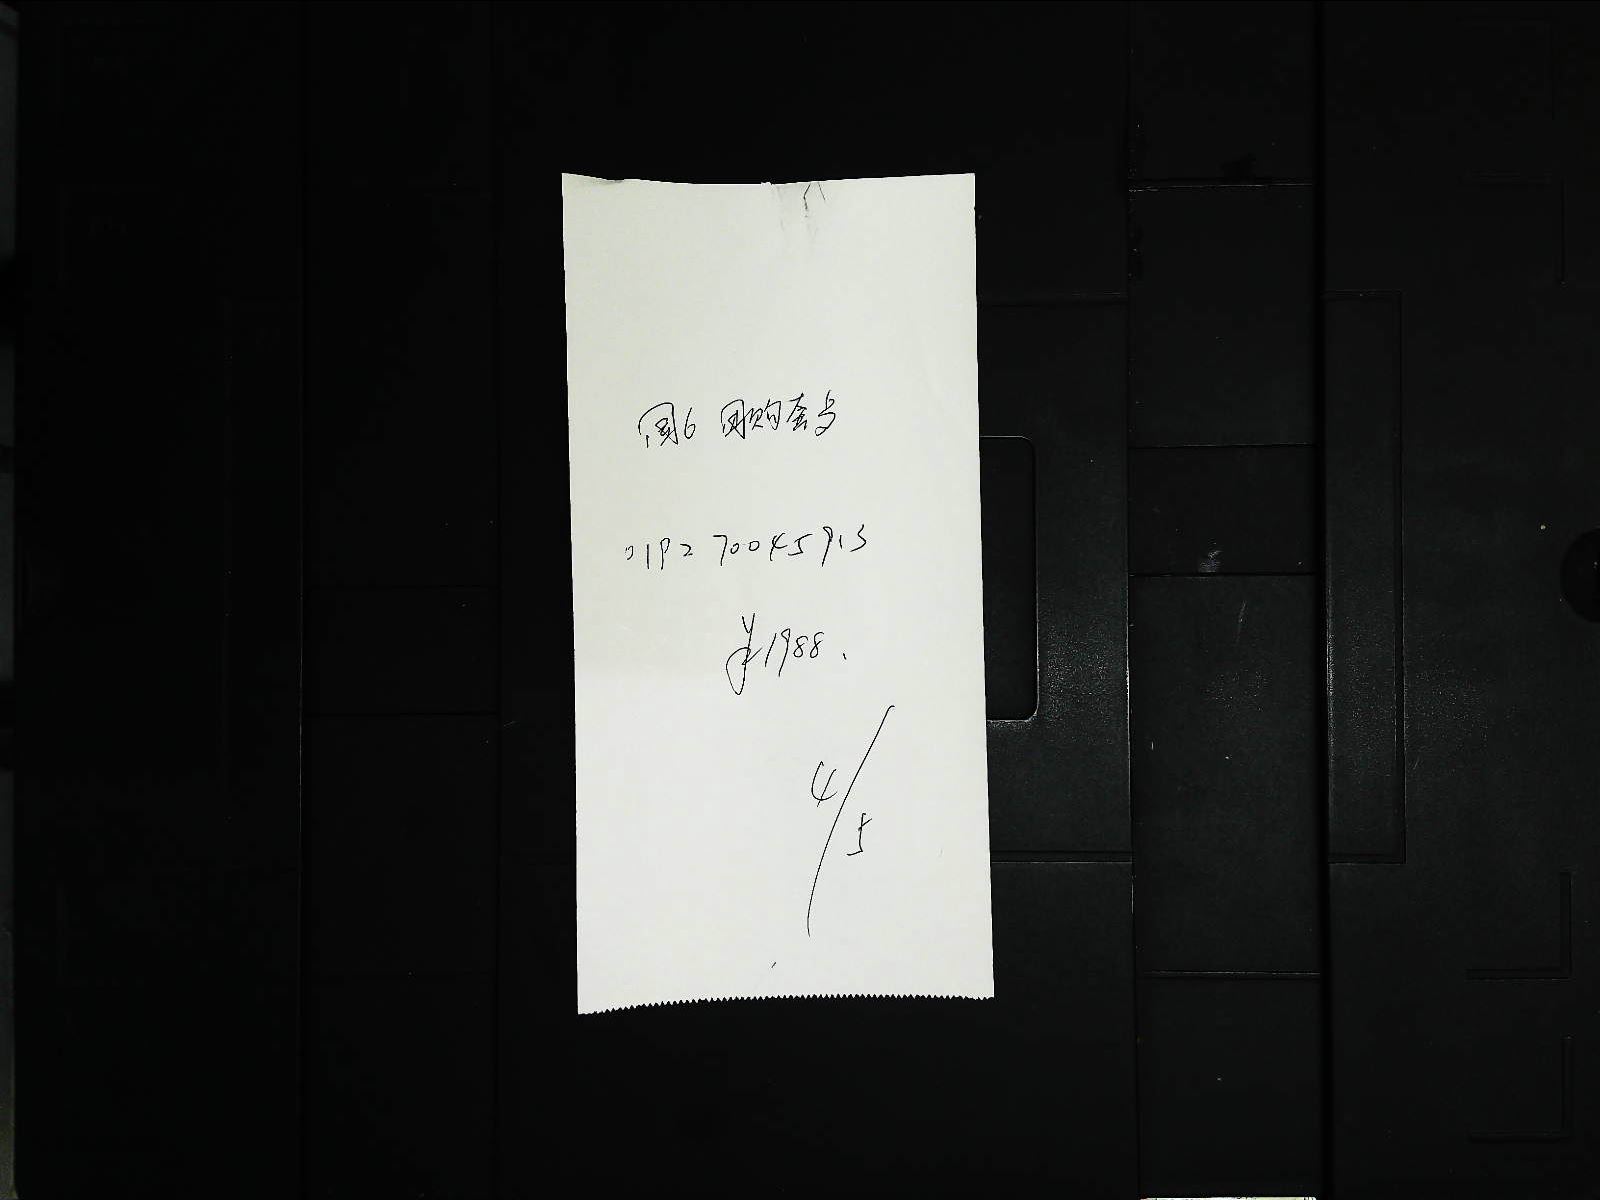 国6 团购套号
0192 70045913
¥1988.
4/5